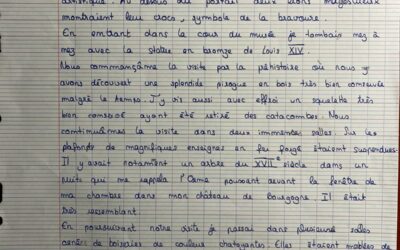 artistique. Au dessus du portail deux lions majestueux
montraient leur crocs, symbole de la bravoure.
En entrant dans la cour du musée je tombais nez à
nez avec la statue en bronze de Louis XIV.
Nous commençâmes la visite par la préhistoire où nous y
avons découvert une splendide pirogue en bois très bien conservée
malgré le temps. J'y vis aussi avec effroi un squelette très
bien conservé ayant été retiré des catacombes. Nous
continuâmes la visite dans deux immenses salles. Sur les
plafonds de magnifiques enseignes en fer forgé étaient suspendues.
Il y avait notamment un arbre du XVII e siècle dans un
puits qui me rappela l'Orme poussant devant la fenêtre de
ma chambre dans mon château de bourgogne. Il était
très ressemblant.
En poursuivant notre visite je passai dans plusieurs salles
ornées de boiseries de couleurs chatoyantes. Elles étaient